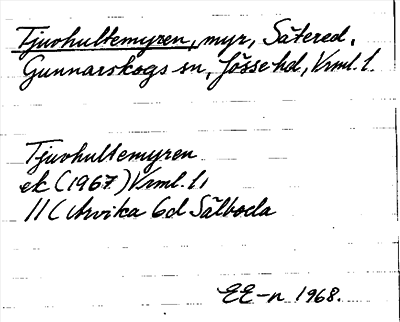 Tjuvhultemyren, myr, Sätered,
Gunnarskogs sn, Jösse hd, Vrml. l.
Tjuvhultemyren
ek (1967) Vrml. l.
11C Arvika 6d Sälboda
EE-n 1968.